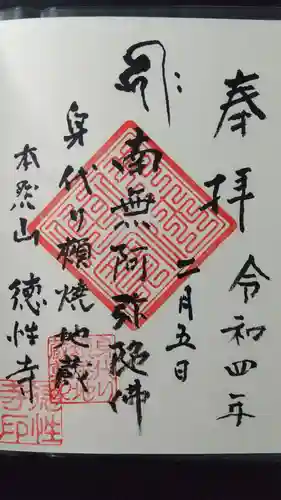 奉拝
令和四年
二月五日
南無阿弥陀佛
身代り頬焼地蔵
本祭山
徳性寺